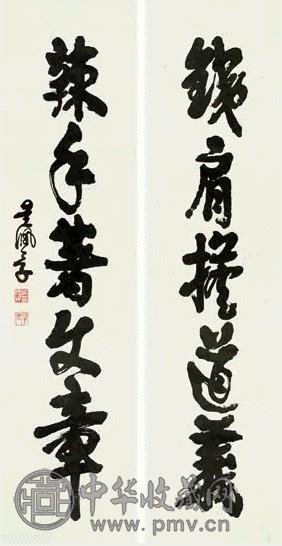 銕肩擔道義
辣手著文章
吳佩孚
中华收藏网
www.pmv.cn